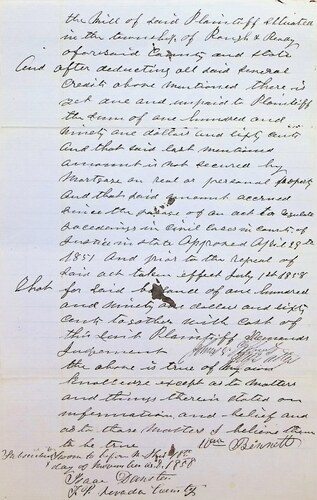 the Mill of said Plaintiff Situated
in the township of Rough & Ready
aforesaid County and state
And after deducting all said several
Credits above mentioned there is
yet due and unpaid to Plaintiff
the sum of one hundred and
ninety one dollars and sixty cents
And that said last mentioned
amount is not secured by
Mortgage on real or personal property
And that said amount accrued
since the passage of an act to regulate
proceedings in civil cases in courts of
Justice in state Approved April 29th
1851 And prior to the repeal of
said act taken effect July 1st 1858
That for said balance of one hundred
and ninety one dollar and sixty
cents together with cost of
this suit Plaintiff demands
Judgement
the above is true of my own
knowledge except as to matters
and things therein stated on
information and belief and
as to these Matters I believe them
to be true Wm Bennett
Subscribed & sworn to before me this
day of November A.D. 1858
Isaac
J.P. Nevada County